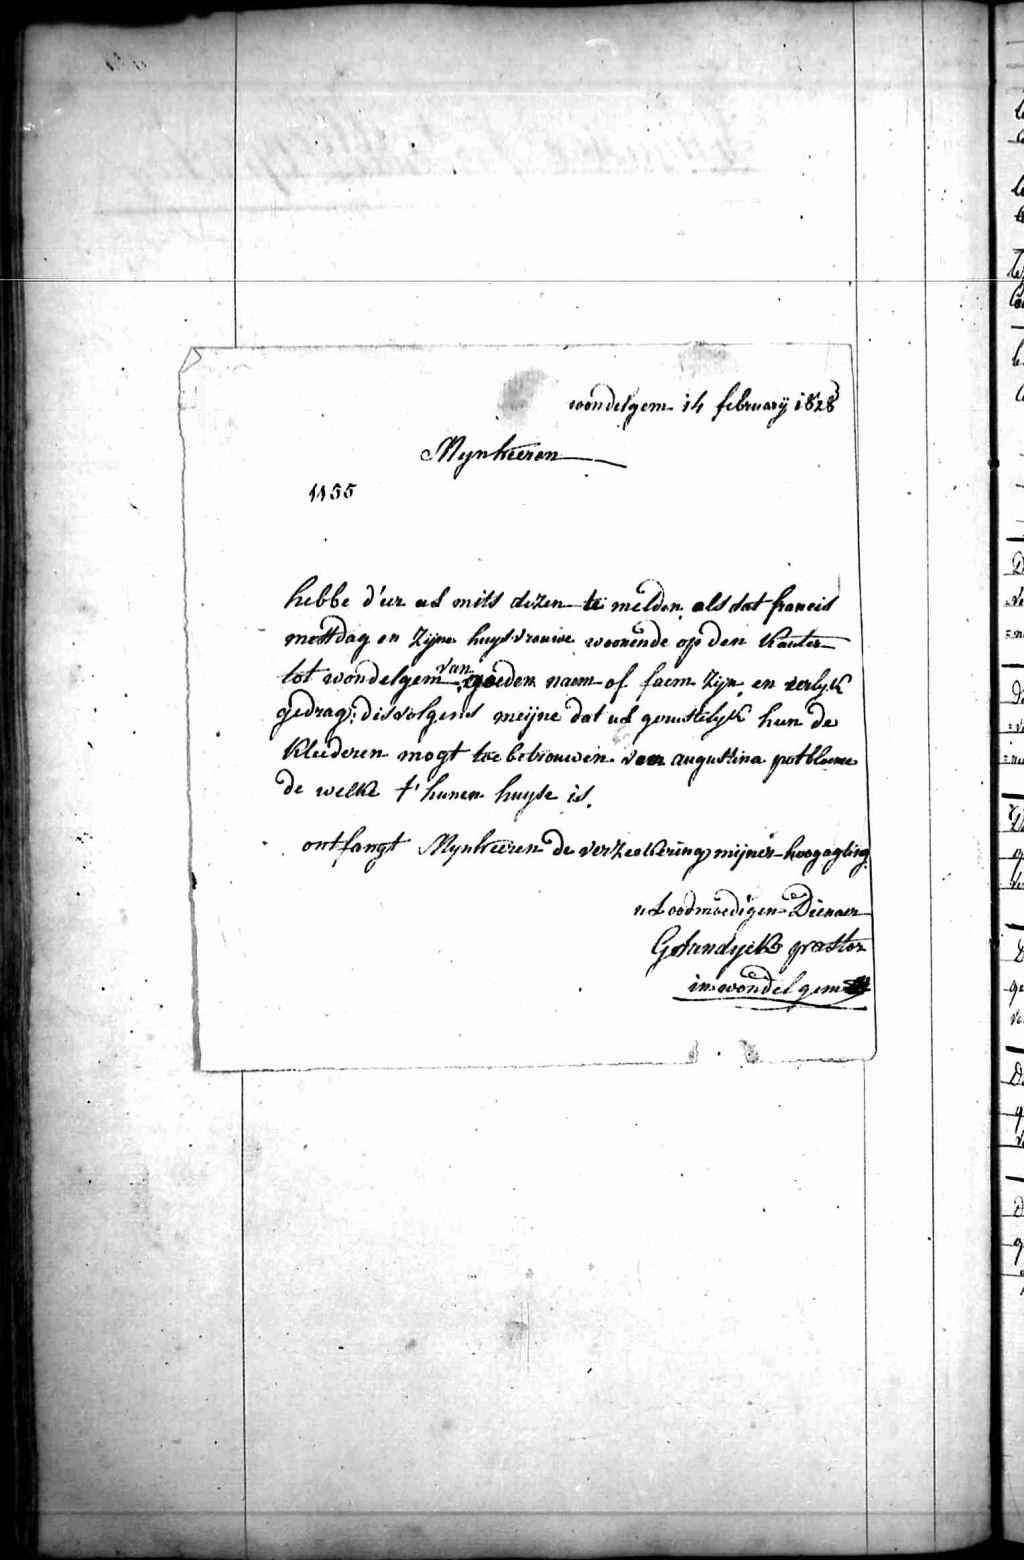 wondelgem 14 february 1828
Mynheeren
1155
hebbe d'eer ud mits dezen te melden als dat francis
mestdag en zijne huysvrouwe woonende op den Kauter
tot wondelgem van goeden naem of faem zijn, en eerlyk
gedrag; disvolgens meijne dat ud gerustelyk hun de
Kleederen mogt toe betrouwen van augustina potbloeme
de welke t' hunen huyse is.
ontfangt Mynheeren de verzeekering mijner hoogagting
ud oodmoedigen Dienaer
pastor
in wondelgem